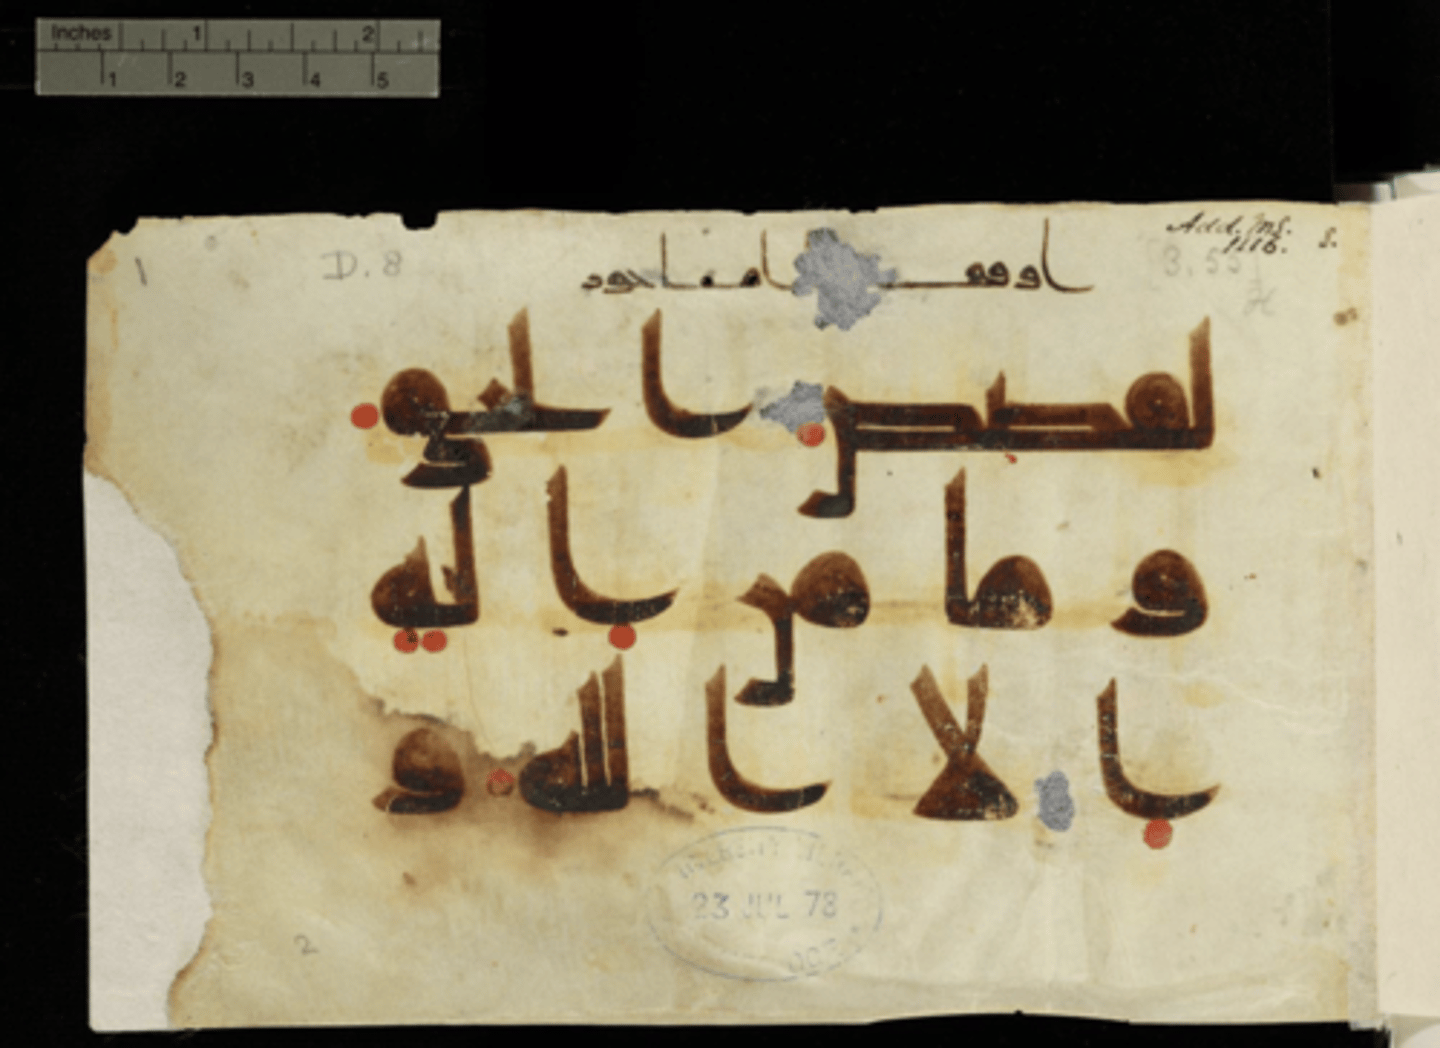 Inches 1 2
1 2 3 4 5
Add. Ms.
1116.
1 D. 8
اوقف اماجور
لقصص الحق
وما من اله
الا الله و
23 JUL 78
2